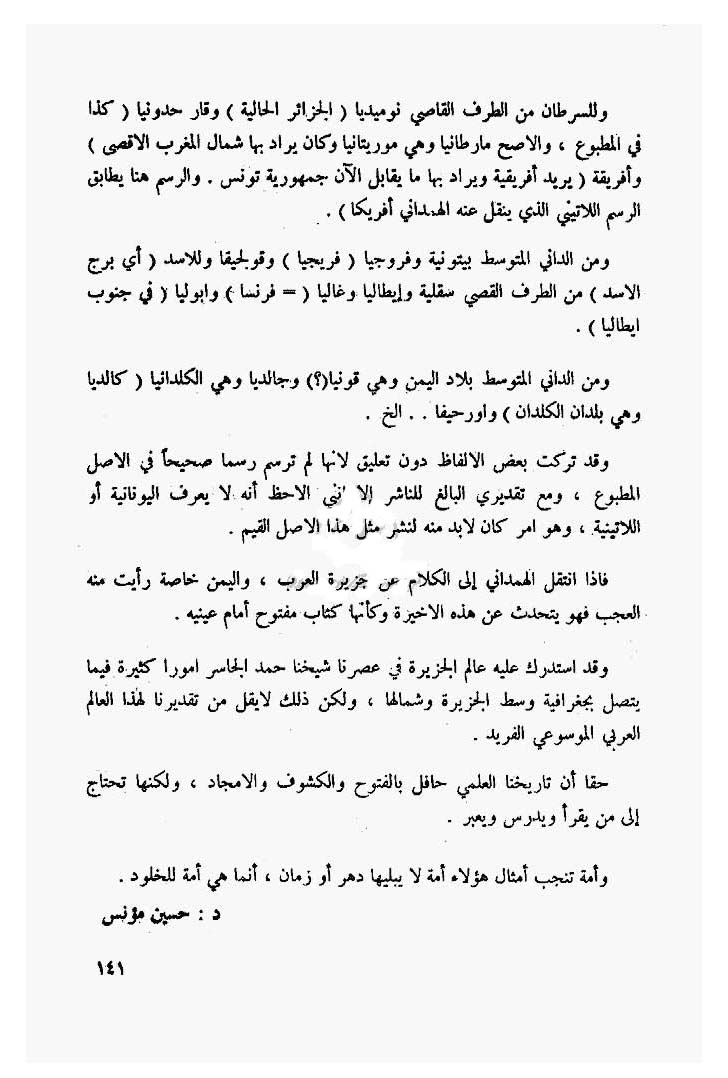 وللسرطان من الطرف القاصي نوميديا ( الجزائر الحالية ) وقار حدونيا ( كذا
في المطبوع ، والاصح مارطانيا وهي موريتانيا وكان يراد بها شمال المغرب الاقصى )
وأفريقة ( يريد أفريقية ويراد بها ما يقابل الآن جمهورية تونس . والرسم هنا يطابق
الرسم اللاتيني الذي ينقل عنه الهمداني أفريكا ) .
ومن الداني المتوسط بيتونية وفروجيا ( فريجيا ) وقولحيقا وللاسد ( أي برج
الاسد ) من الطرف القصي سقلية وإيطاليا وغاليا ( = فرنسا ) وابوليا ( في جنوب
ايطاليا ) .
ومن الداني المتوسط بلاد اليمن وهي قونيا(؟) وجالديا وهي الكلدانيا ( كالديا
وهي بلدان الكلدان ) واورحيفا . . الخ .
وقد تركت بعض الالفاظ دون تعليق لانها لم ترسم رسما صحيحاً في الاصل
المطبوع ، ومع تقديري البالغ للناشر إلا انني الاحظ أنه لا يعرف اليونانية أو
اللاتينية ، وهو امر كان لابد منه لنشر مثل هذا الاصل القيم .
فاذا انتقل الهمداني إلى الكلام عن جزيرة العرب ، واليمن خاصة رأيت منه
العجب فهو يتحدث عن هذه الاخيزة وكأنها كتاب مفتوح أمام عينيه .
وقد استدرك عليه عالم الجزيرة في عصرنا شيخنا حمد الجاسر امورا كثيرة فيما
يتصل بجغرافية وسط الجزيرة وشمالها ، ولكن ذلك لايقل من تقديرنا لهذا العالم
العربي الموسوعي الفريد .
حقا أن تاريخنا العلمي حافل بالفتوح والكشوف والامجاد ، ولكنها تحتاج
إلى من يقرأ ويدرس ويعبر .
وأمة تنجب أمثال هؤلاء أمة لا يبليها دهر أو زمان ، أنما هي أمة للخلود .
د : حسين مؤنس
١٤١